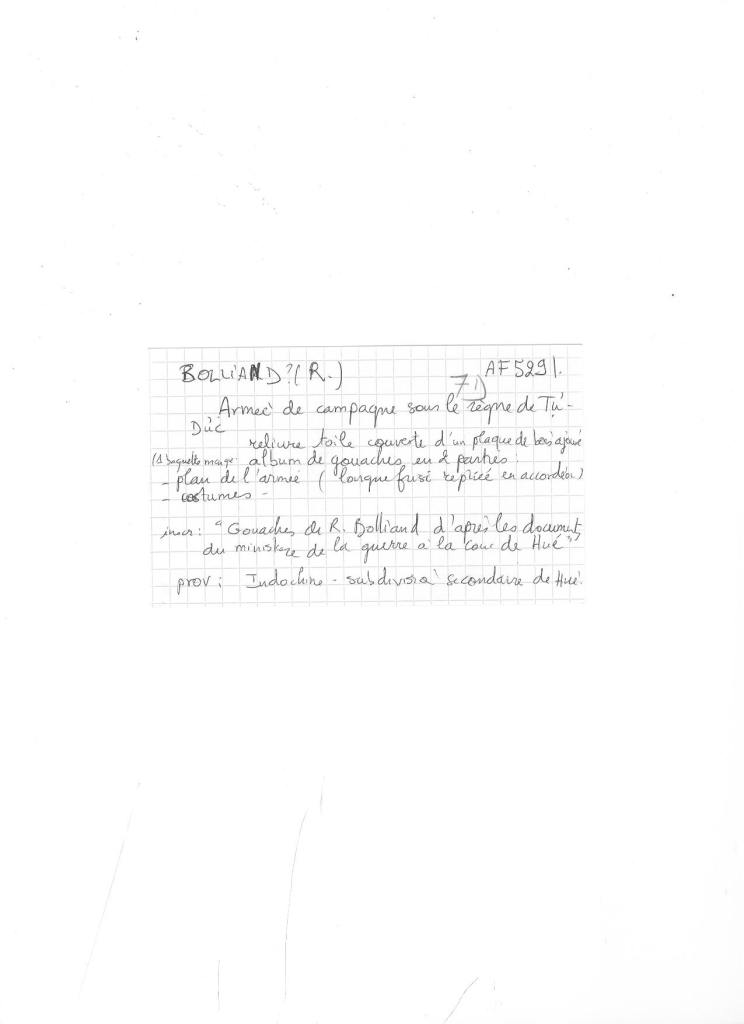 BOLLIAND? (R.) AF 5291.
7D
Armeé de campagne sous le règne de Tụ́-
Dúc
reliure toile couverte d'un plaque de bois ajouré
(1 baguette manque) album de gouaches en 2 parties :
- plan de l'armée ( longue frise repliée en accordéon)
- costumes -
inscr : " Gouaches de R. Bolliand d'après les document
du ministère de la guerre à la cour de Hué "
prov : Indochine - subdivision secondaire de Hué.